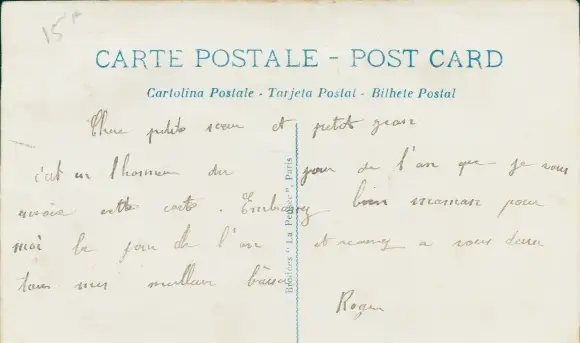 15 F
CARTE POSTALE - POST CARD
Cartolina Postale - Tarjeta Postal - Bilhete Postal
Chere petite soeur et petit gosse
c'est en l'honneur du jour de l'an que je vous
envoie cette carte. Embrassez bien maman pour
moi le jour de l'an et a vous deux
tous mes meilleur baiser
Roger
Brodées "La Pensée", Paris